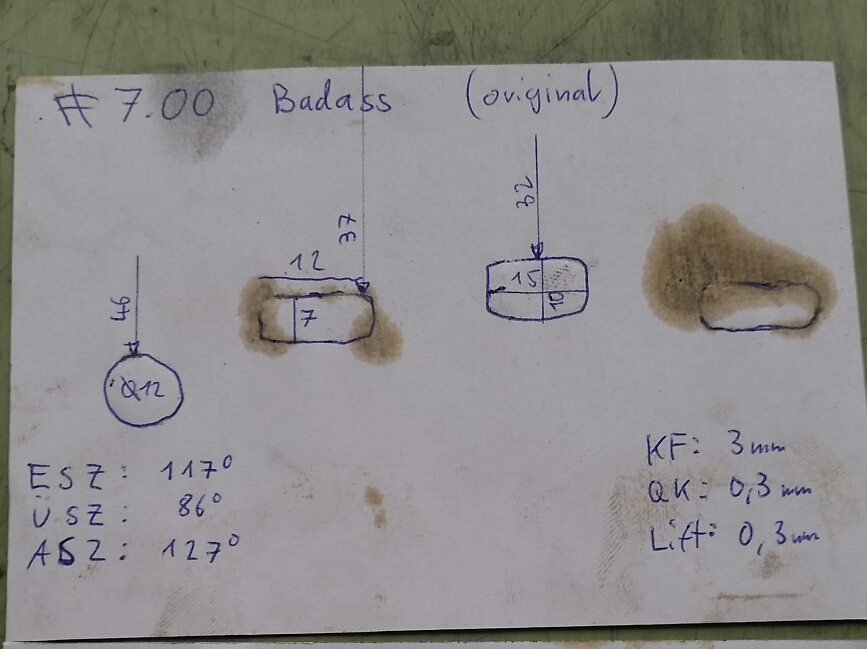 # 7.00 Badass (original)
46
Ø12
12
37
7
32
15
10
ESZ: 117°
ÜSZ: 86°
ASZ: 127°
KF: 3mm
QK: 0,3mm
Lift: 0,3mm